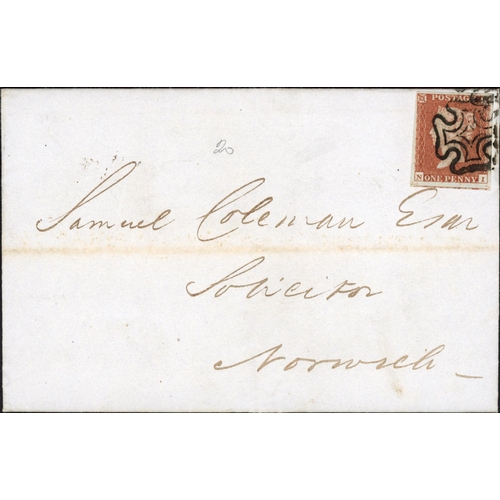 POSTAGE
N ONE PENNY I
20
Samuel Coleman Esqr
Solicitor
Norwich